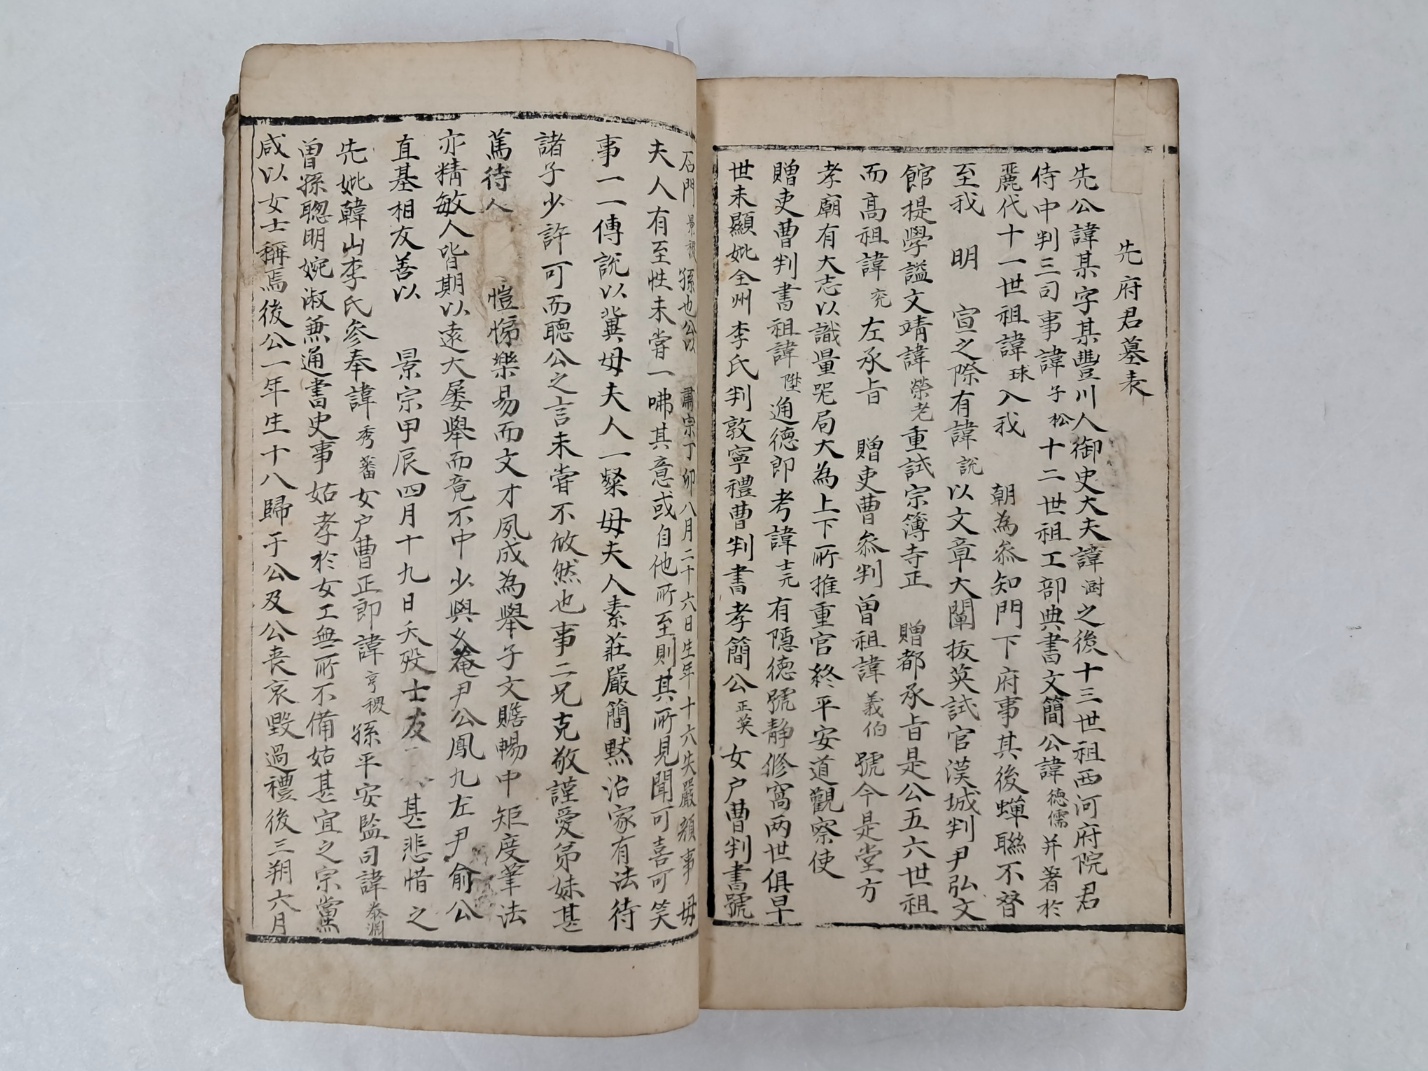 先府君墓表
先公諱某字某豊川人御史大夫諱澍之後十三世祖西河府院君
侍中判三司事諱子松十二世祖工部典書文簡公諱德儒并著於
麗代十一世祖諱球入我 朝為叅知門下府事其後蟬聯不替
至我 明 宣之際有諱說以文章大闡拔英試官漢城判尹弘文
館提學謚文靖諱榮老重試宗簿寺正 贈都承旨是公五六世祖
而高祖諱兖左承旨 贈吏曹叅判曾祖諱義伯號今是堂方
孝廟有大志以識量器局大為上下所推重官終平安道觀察使
贈吏曹判書祖諱陞通德郎考諱士元有隱德號靜修窩两世俱早
世未顯妣全州李氏判敦寧禮曹判書孝簡公正英女户曹判書號
石門景稷孫也公以 肅宗丁卯八月二十六日生年十六失嚴顏事母
夫人有至性未嘗一咈其意或自他所至則其所見聞可喜可笑
事一一傳說以兾母夫人一粲母夫人素莊嚴簡默治家有法待
諸子少許可而聽公之言未嘗不放然也事二兄克敬謹愛弟妹甚
篤待人 愷悌樂易而文才夙成為舉子文贍暢中矩度筆法
亦精敏人皆期以遠大屡舉而竟不中少與菴尹公鳳九左尹俞公
直基相友善以 景宗甲辰四月十九日夭殁士友 甚悲惜之
先妣韓山李氏參奉諱秀蕃女户曹正郎諱亨稷孫平安監司諱泰淵
曽孫聰明婉淑兼通書史事姑孝於女工無所不備姑甚宜之宗黨
咸以女士稱焉後公一年生十八歸于公及公丧哀毁過禮後三朔六月